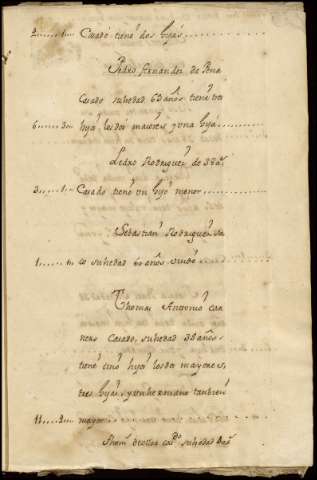 Casado tiene dos hijas
Pedro fernandez de Pena
Casado su hedad 63 años tiene tres
hijos los dos maiores y una hija
Pedro Rodriguez de 38 aˢ
Casado tiene un hijo menor
Sebastian Rodriguez
su hedad 60 años viudo
Thomas Antonio
Casado, su hedad 38 años
tiene cinco hijos los dos mayores,
tres hijas, y un hermano tambien
mayor
casᵈᵒ su hedad